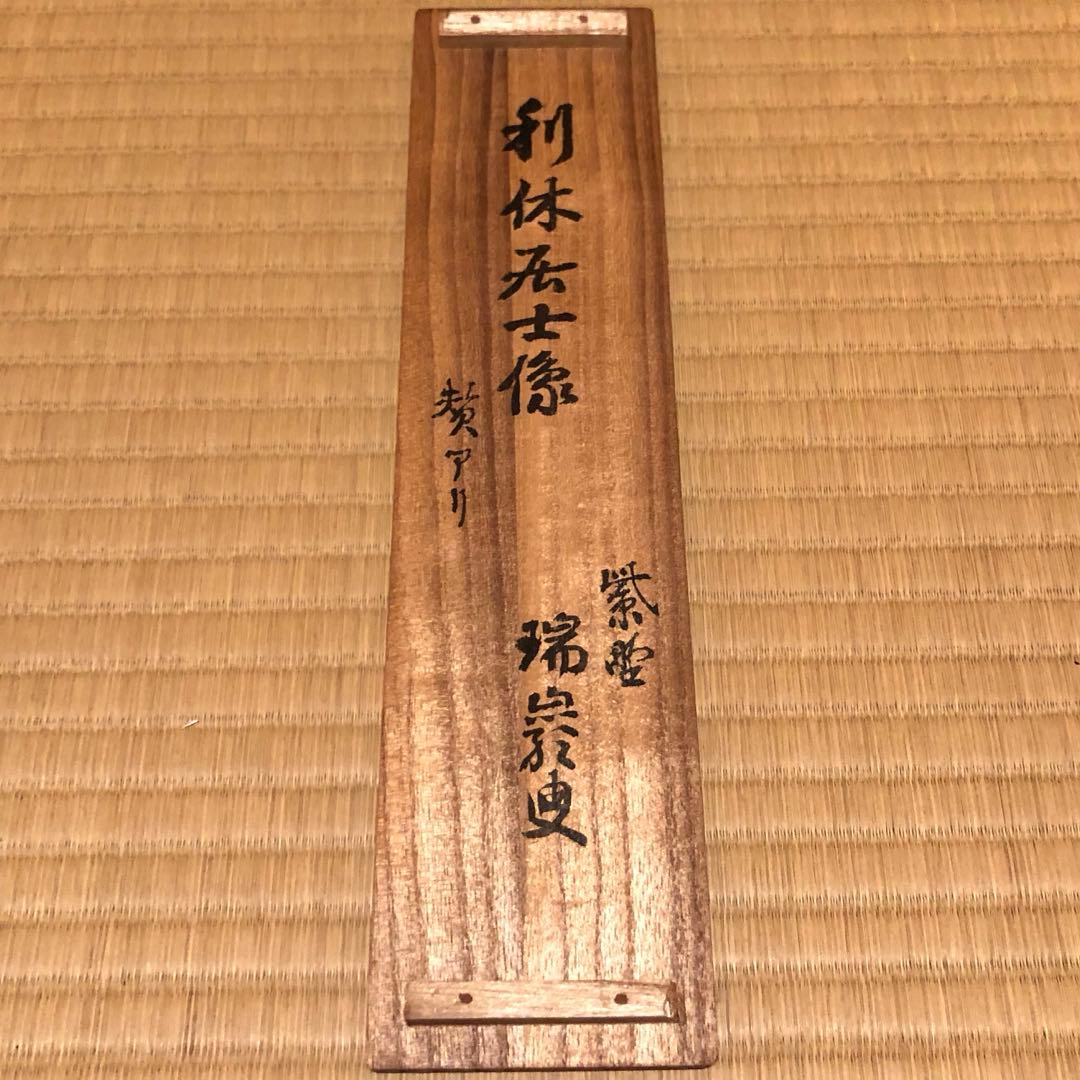 利休居士像
賛アリ
紫野
瑞巌叟